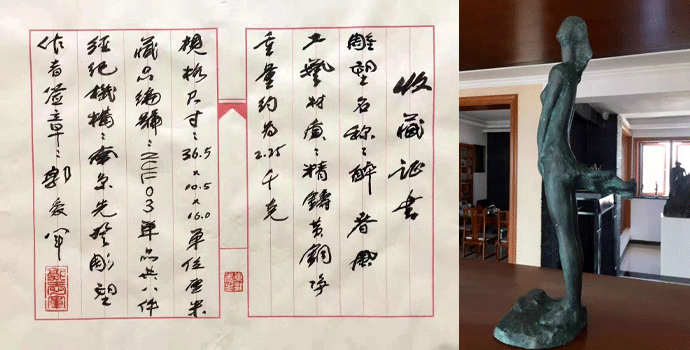 收藏证书
雕塑名称：醉春风
工艺材质：精铸黄铜 净
重量约为2.25千克
规格尺寸：36.5×10.5×16.0单位厘米
藏品编号：NEIF03单品共八件
经纪机构：南京先登雕塑
作者签章：郭爱军